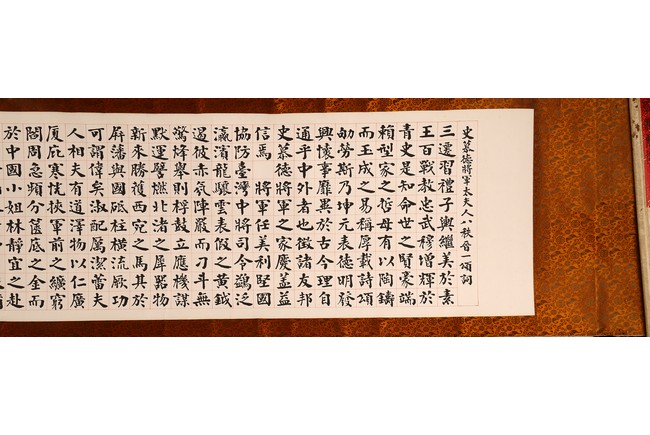 史慕德將軍太夫人八秩晉一頌詞
三遷習禮子輿繼美於素
王百戰教忠武穆增輝於
青史是知命世之賢豪端
賴型家之哲母有以陶鑄
而玉成之易稱厚載詩頌
劬勞斯乃坤元表德明發
興懷事靡異於古今理自
通乎中外者也徵諸友邦
史慕德將軍之家慶蓋益
信焉 將軍任美利堅國
協防臺灣中將司令鷁泛
瀛濱龍驤雲表假之黃鉞
遏彼赤氛陣嚴而刁斗無
驚烽舉則桴鼓立應機謀
默運譬燃北渚之犀物
新來勝獲西宛之馬其於
屏藩與國砥柱橫流厥功
可謂偉矣淑配厲潔蕾夫
人相夫有道澤物以仁廣
厦庇寒恍挾軍前之纊窮
閻周急頻分篋底之金而
於中國小姐林靜宜之赴